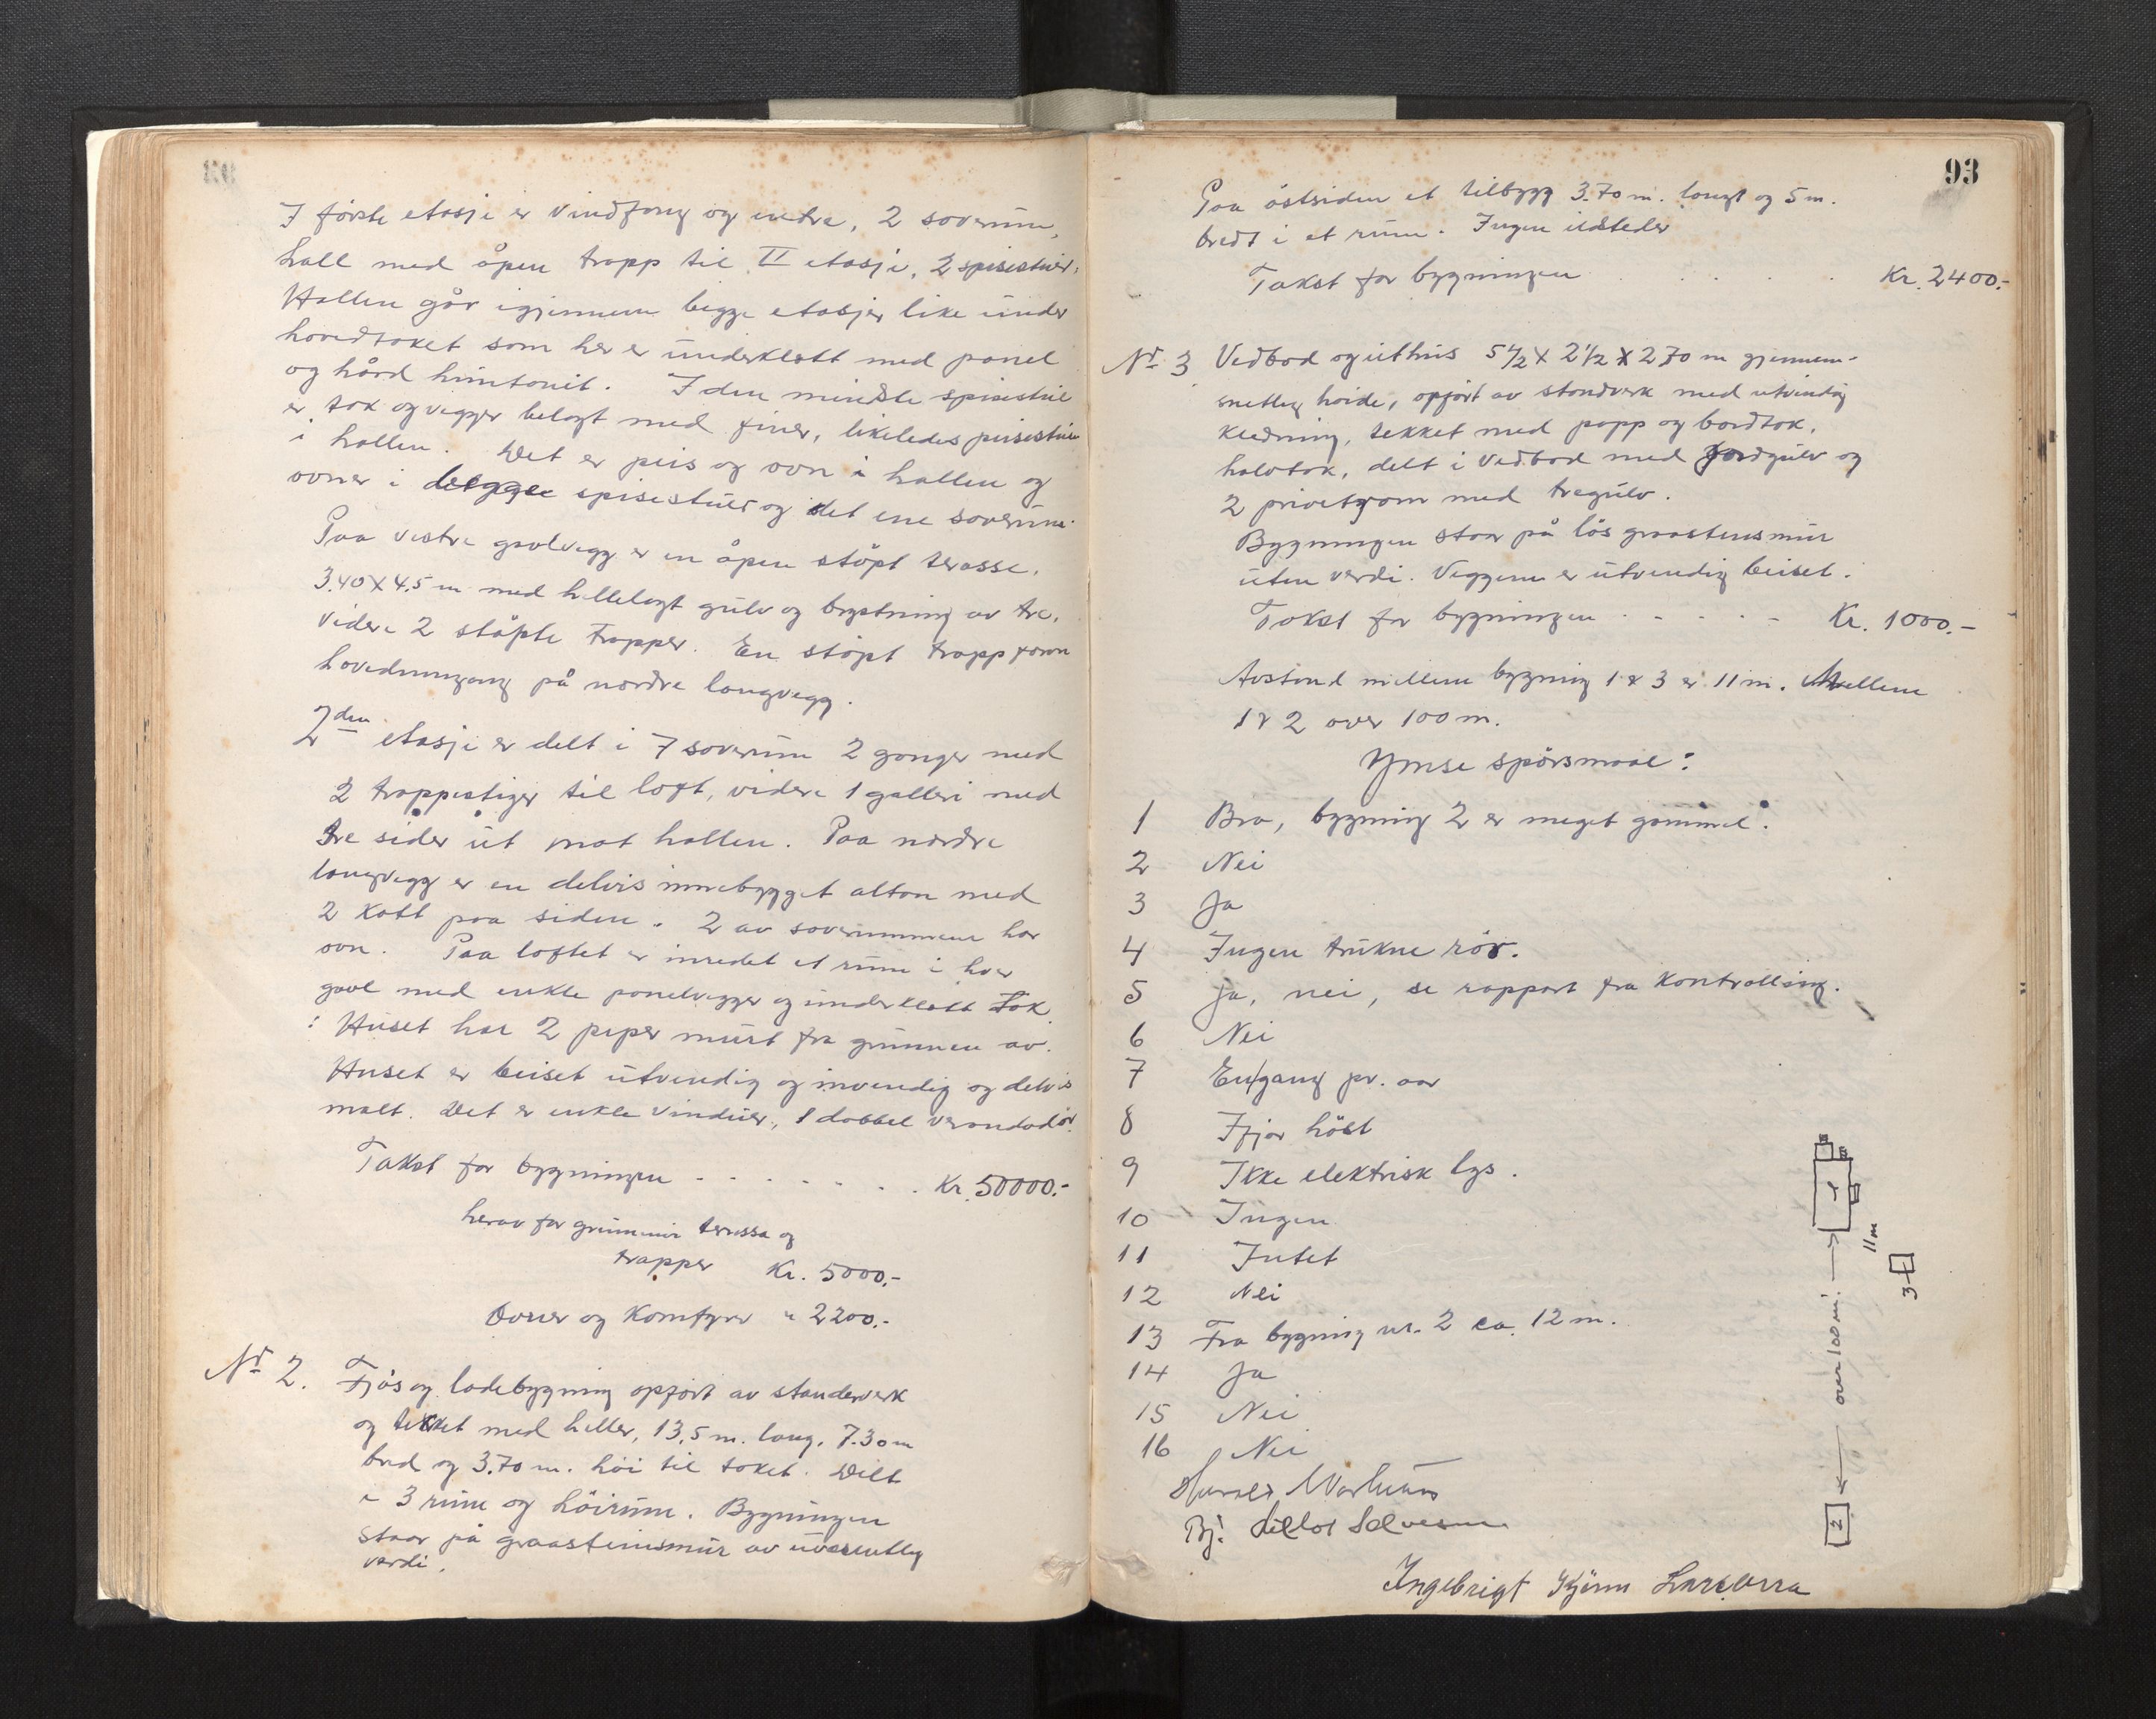 I förste etasje er vindfang og entre, 2 soverum,
hall med åpen trapp til II etasje, 2 spisestuer.
Hallen går igjennem begge etasjer like under
hovedtaket som her er underklætt med panel
og hård huntonit. I den mindste spisestue
er tak og vegger belagt med finer, likeledes peisestue
i hallen. Det er peis og ovn i hallen og
ovner i begge spisestuer og det ene soverum.
Paa vestre gavlvegg er en åpen stöpt terasse.
3.40 X 4.5 m med hellelagt gulv og brystning av tre,
videre 2 stöpte trapper. En stöpt trapp foran
hovedinngang på nordre langvegg.
2den etasje er delt i 7 soverum 2 ganger med
2 trappestiger til loft, videre 1 galleri med
tre sider ut mot hallen. Paa nordre
langvegg er en delvis innebygget altan med
2 kott paa siden. 2 av soverummene har
ovn. Paa loftet er inredet et rum i hver
gavl med enkle panelvegger og underklætt tak.
Huset har 2 piper murt fra grunnen av.
Huset er beiset utvendig og invendig og delvis
malt. Det er enkle vinduer, 1 dobbel verandadör.
Takst for bygningen . . . . . . . Kr. 50000.-
herav for grunnmur terassa og
trapper Kr. 5000.-
Ovner og Komfyrer " 2200.-
No 2. Fjös og ladebygning opfört av standerverk
og tekket med heller, 13,5 m. lang, 7.30 m
bred og 3.70 m. höi til taket. Delt
i 3 rum og höirum. Bygningen
staar på graastensmur av uvesentlig
verdi.
93
Paa östsiden et tilbygg 3.70 m. langt og 5 m.
bredt i et rum. Ingen ildsteder
Takst for bygningen . . . Kr. 2400.-
No 3 Vedbod og uthus 5 1/2 X 2 1/2 X 2,70 m gjennem-
snetlig höide, opfört av standverk med utvindig
kledning, tekket med papp og bordtak,
halvtak, delt i vedbod med jordgulv og
2 privetrom med tregulv.
Bygningen staar på lös graastensmur
uten verdi. Veggene er utvendig beiset.
Takst for bygningen . . . . - Kr. 1000.-
Avstand mellem bygning 1 & 3 er 11 m. Mellem
1 & 2 over 100 m.
Ymse spörsmaal:
1 Bra, bygning 2 er meget gammel.
2 Nei
3 Ja
4 Ingen trukne rör.
5 Ja, nei, se rapport fra Kontrolling.
6 Nei
7 En gang pr. aar
8 Ifjor höst
9 Ikke elektrisk lys.
10 Ingen
11 Intet
12 Nei
13 Fra bygning nr. 2 ca. 12 m.
14 Ja
15 Nei
16 Nei
1
11 m
3
over 100 m.
2
Ingebrigt